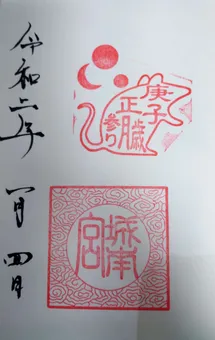 庚子
正
参り
城南
宮
令和二年
一月四日